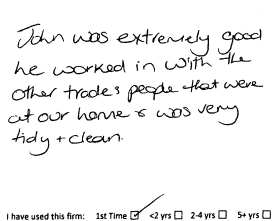 John was extremely good
he worked in with the
other trades people that were
at our home & was very
tidy + clean.
I have used this firm: 1st Time ☑ <2 yrs ☐ 2-4 yrs ☐ 5+ yrs ☐